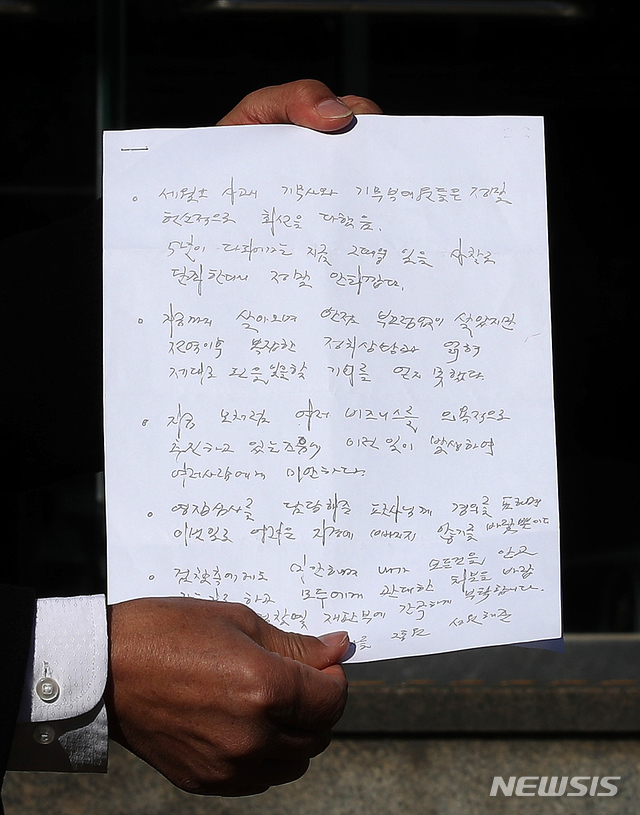 세월호 사고시 기무사와 기무부대원들은 정말
헌신적으로 최선을 다했음.
5년이 다 되어가는 지금 그때의 일을 사찰로
단죄한다니 정말 안타깝다.
지금까지 살아오며 한점 부끄럼없이 살았지만
전역이후 복잡한 정치상황과 얽혀
제대로 된 일을 할 기회를 얻지 못했다.
지금 모처럼 여러 비즈니스를 의욕적으로
추진하고 있는 즈음에 이런 일이 발생하여
여러사람에게 미안하다.
영장심사를 담당해준 판사님께 경의를 표하며
이번일로 어려운 지경에 빠지지 않기를 바랄 뿐이다
검찰측에게도 미안하며 내가 모든것을 안고
모두에게 관대한 처분을 바랍
재판부에 간곡하게 부탁합니다.
NEWSIS